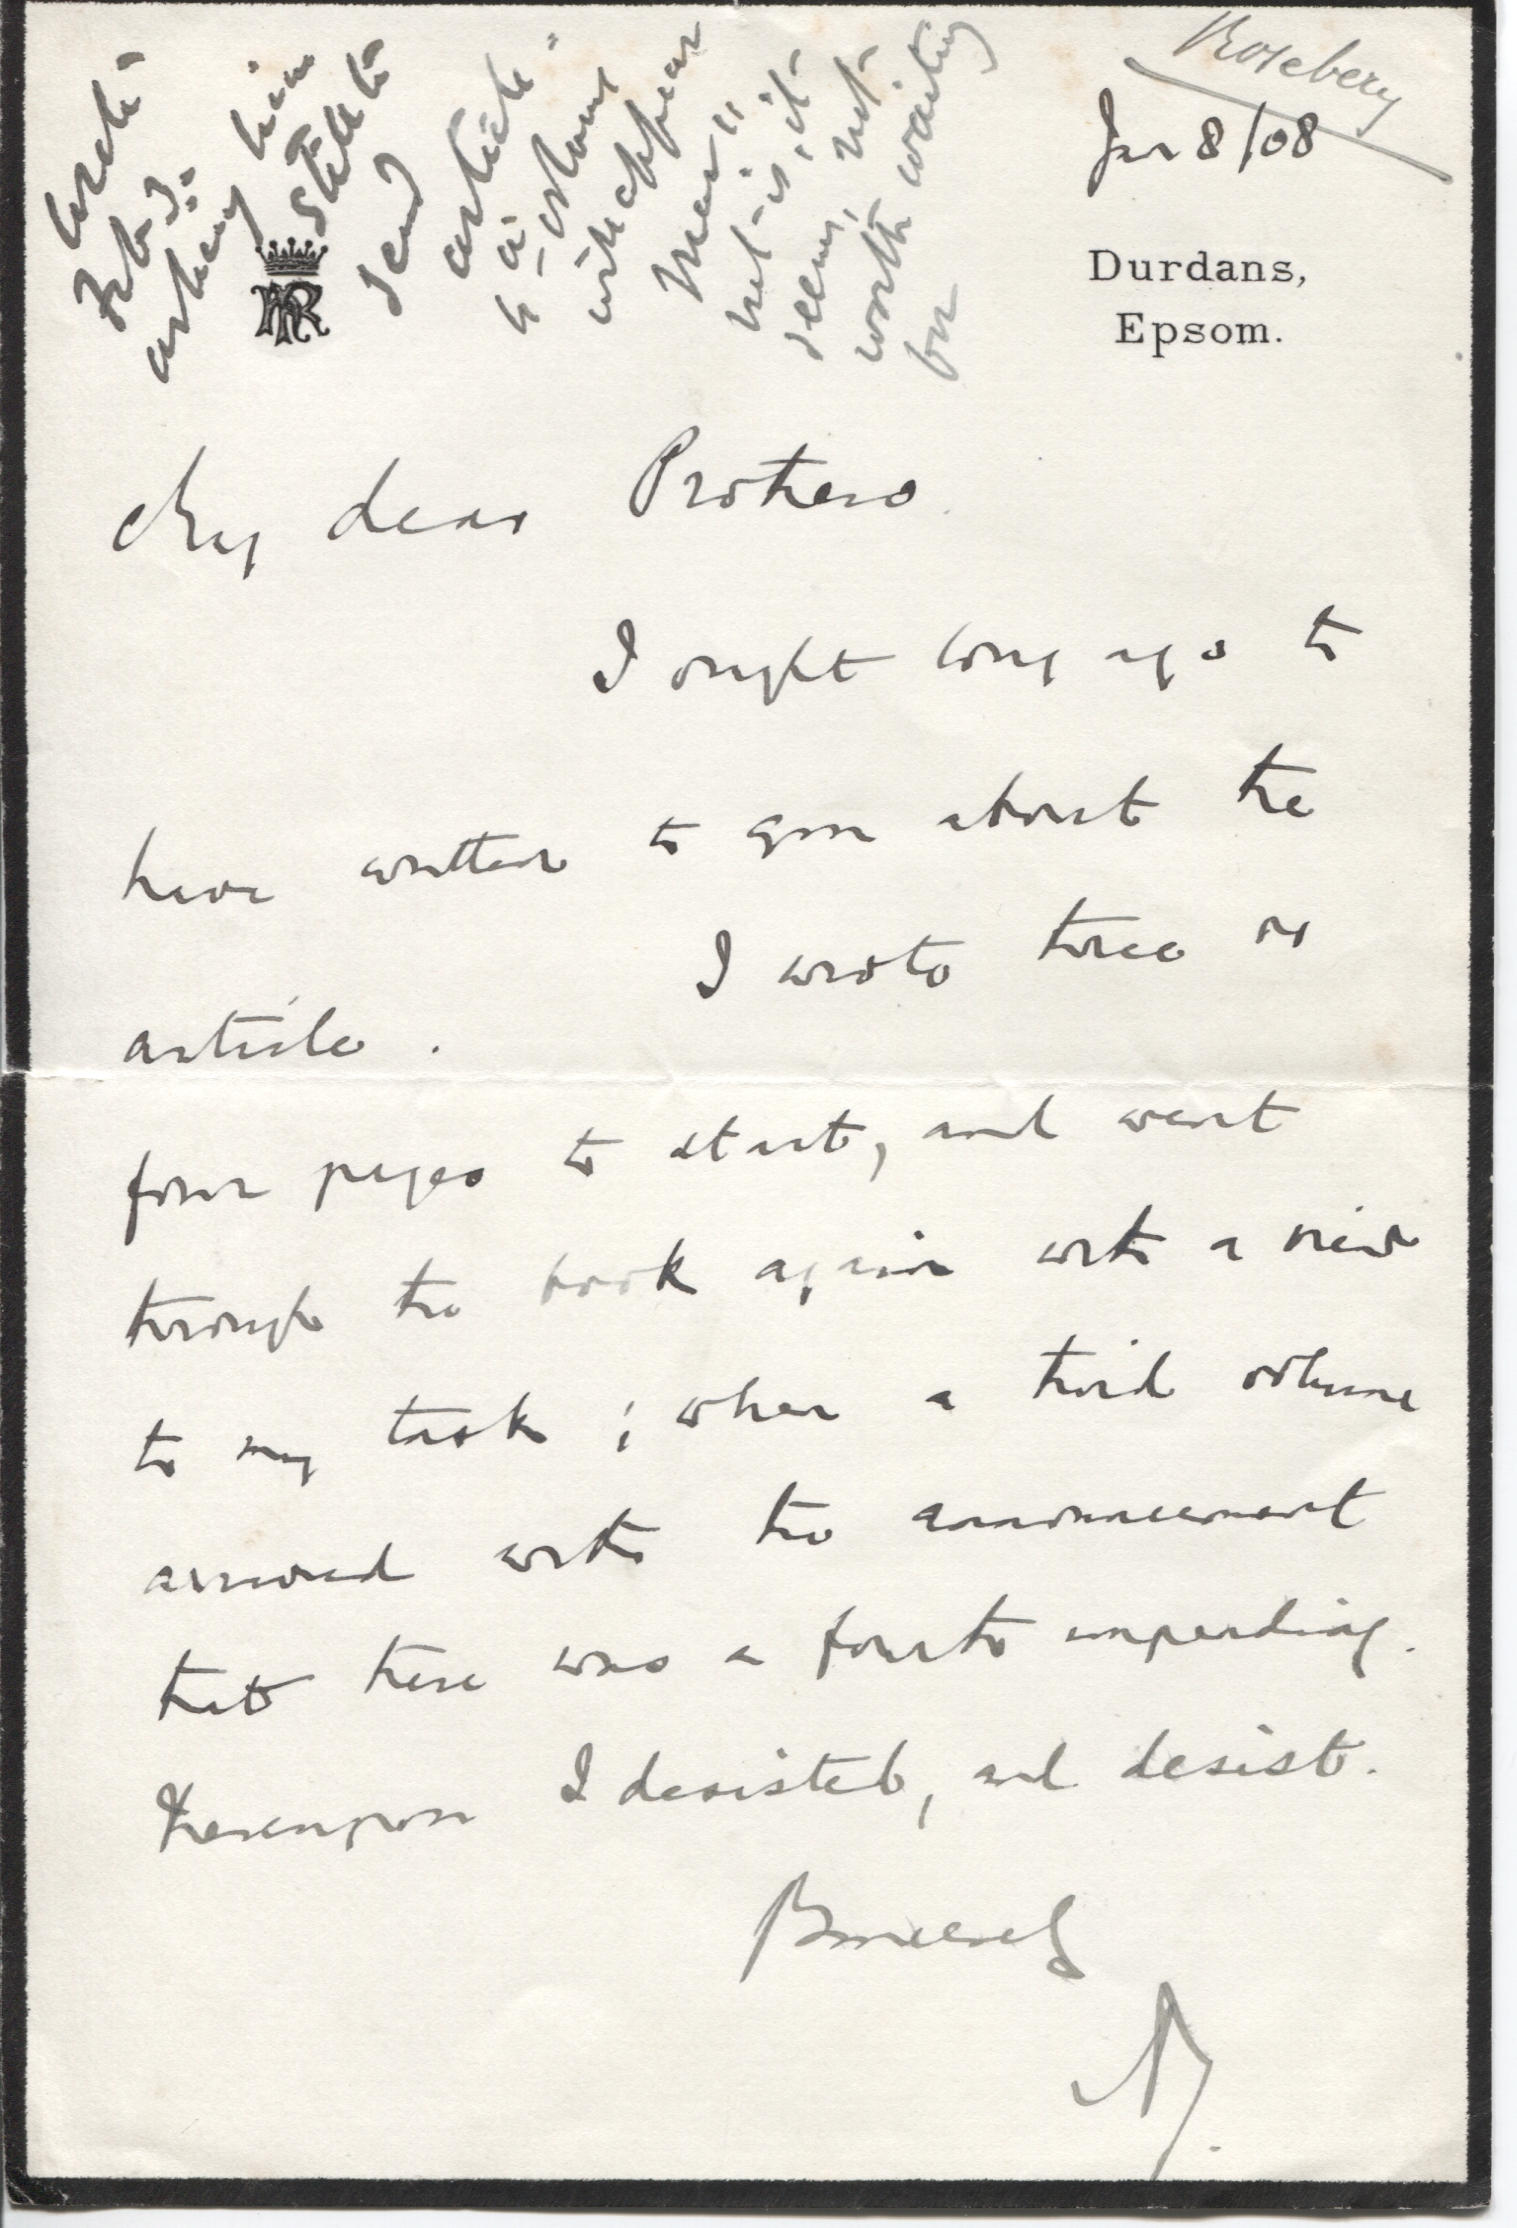 Rosebery
Jan 8/08
Durdans,
Epsom.
wrote
Feb 3.
asking him
still to
send
article
a
volume
will appear
Mar 11
not is, it
seems, not
worth waiting
for
My dear Prothero.
I ought long ago to
have written to you about the
article. I wrote three or
four pages to start, and went
through the book again with a view
to my task; when a third volume
arrived with the announcement
that there was a fourth impending.
Thereupon I desisted, and desist.
Sincerely
AR.